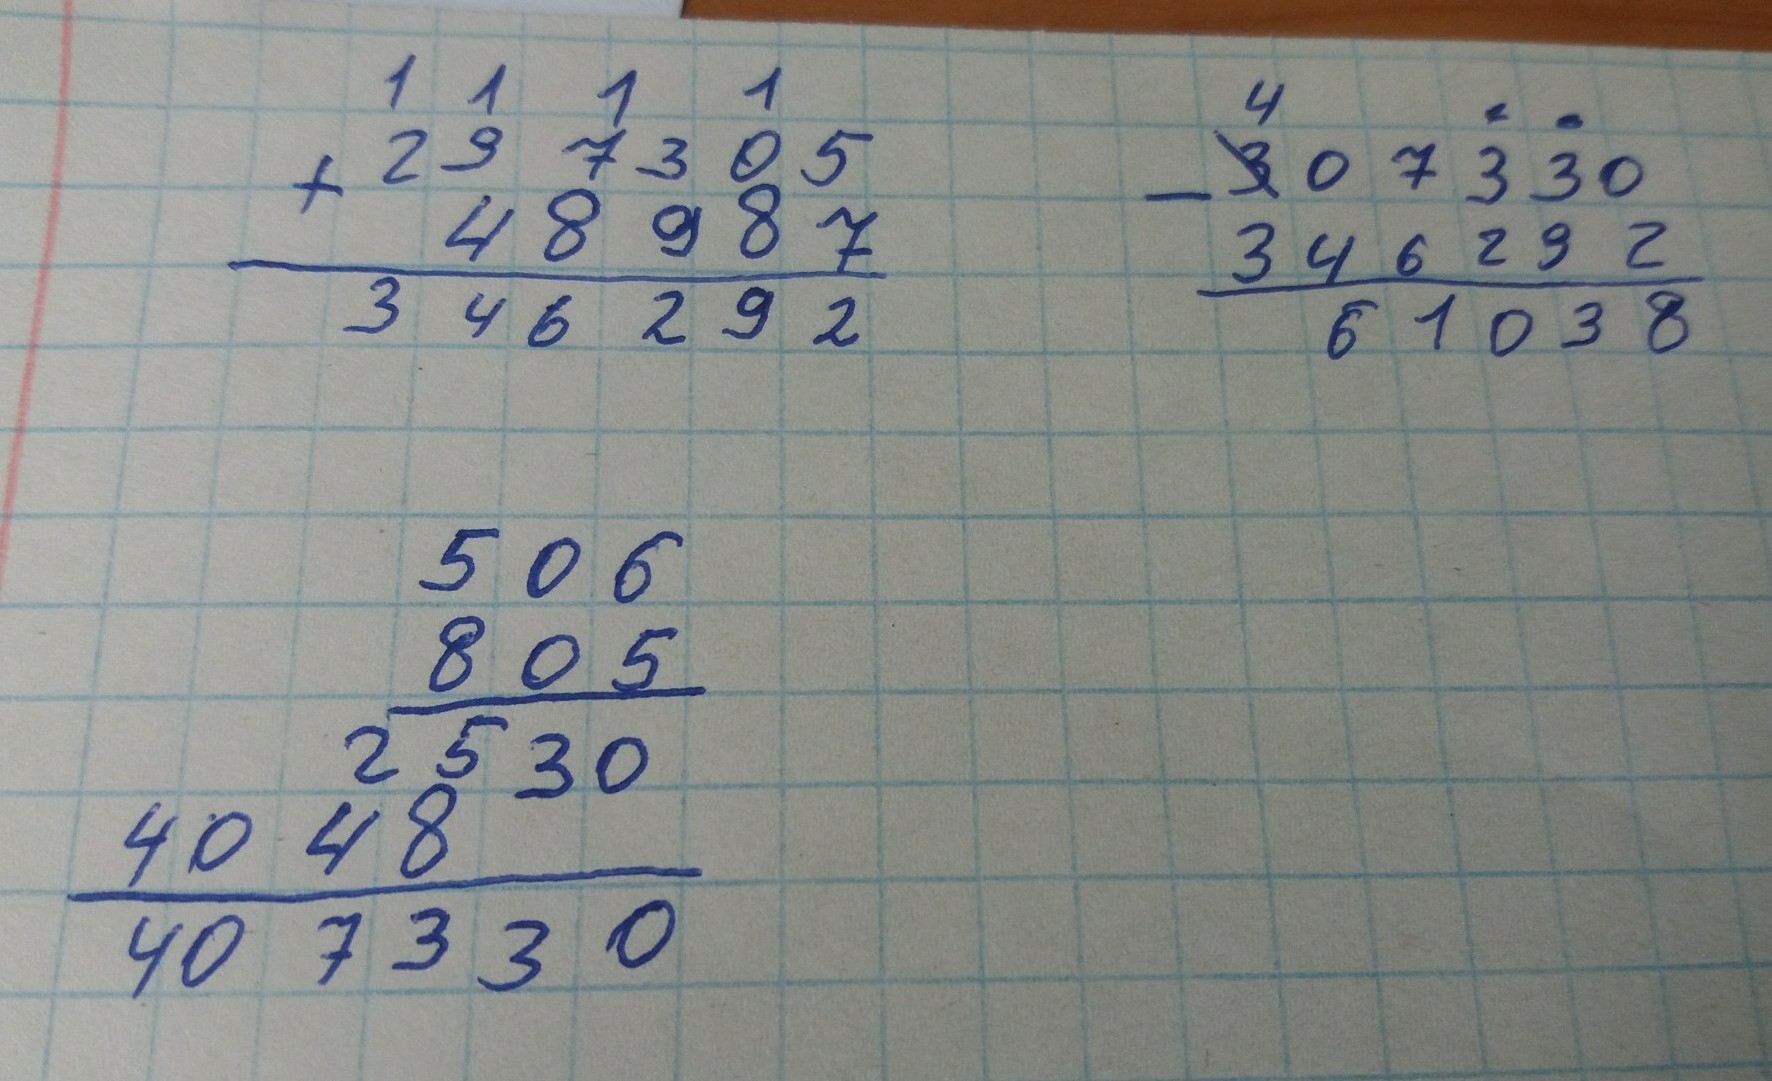 1 1 1 1
+ 297305
48987
346292
4
- 307330
346292
61038
506
805
2530
4048
407330